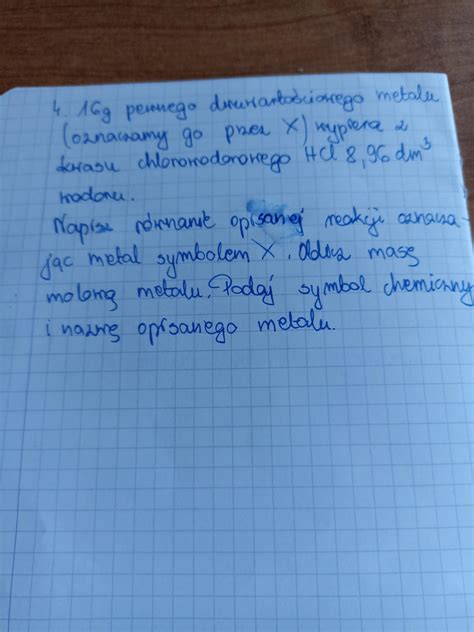 4. 16g pewnego dwuwartościowego metalu
(oznaczamy go przez X) wypiera z
kwasu chlorowodorowego HCl 8,96 dm³
wodoru.
Napisz równanie opisanej reakcji oznacza
jąc metal symbolem X. Oblicz masę
molową metalu. Podaj symbol chemiczny
i nazwę opisanego metalu.